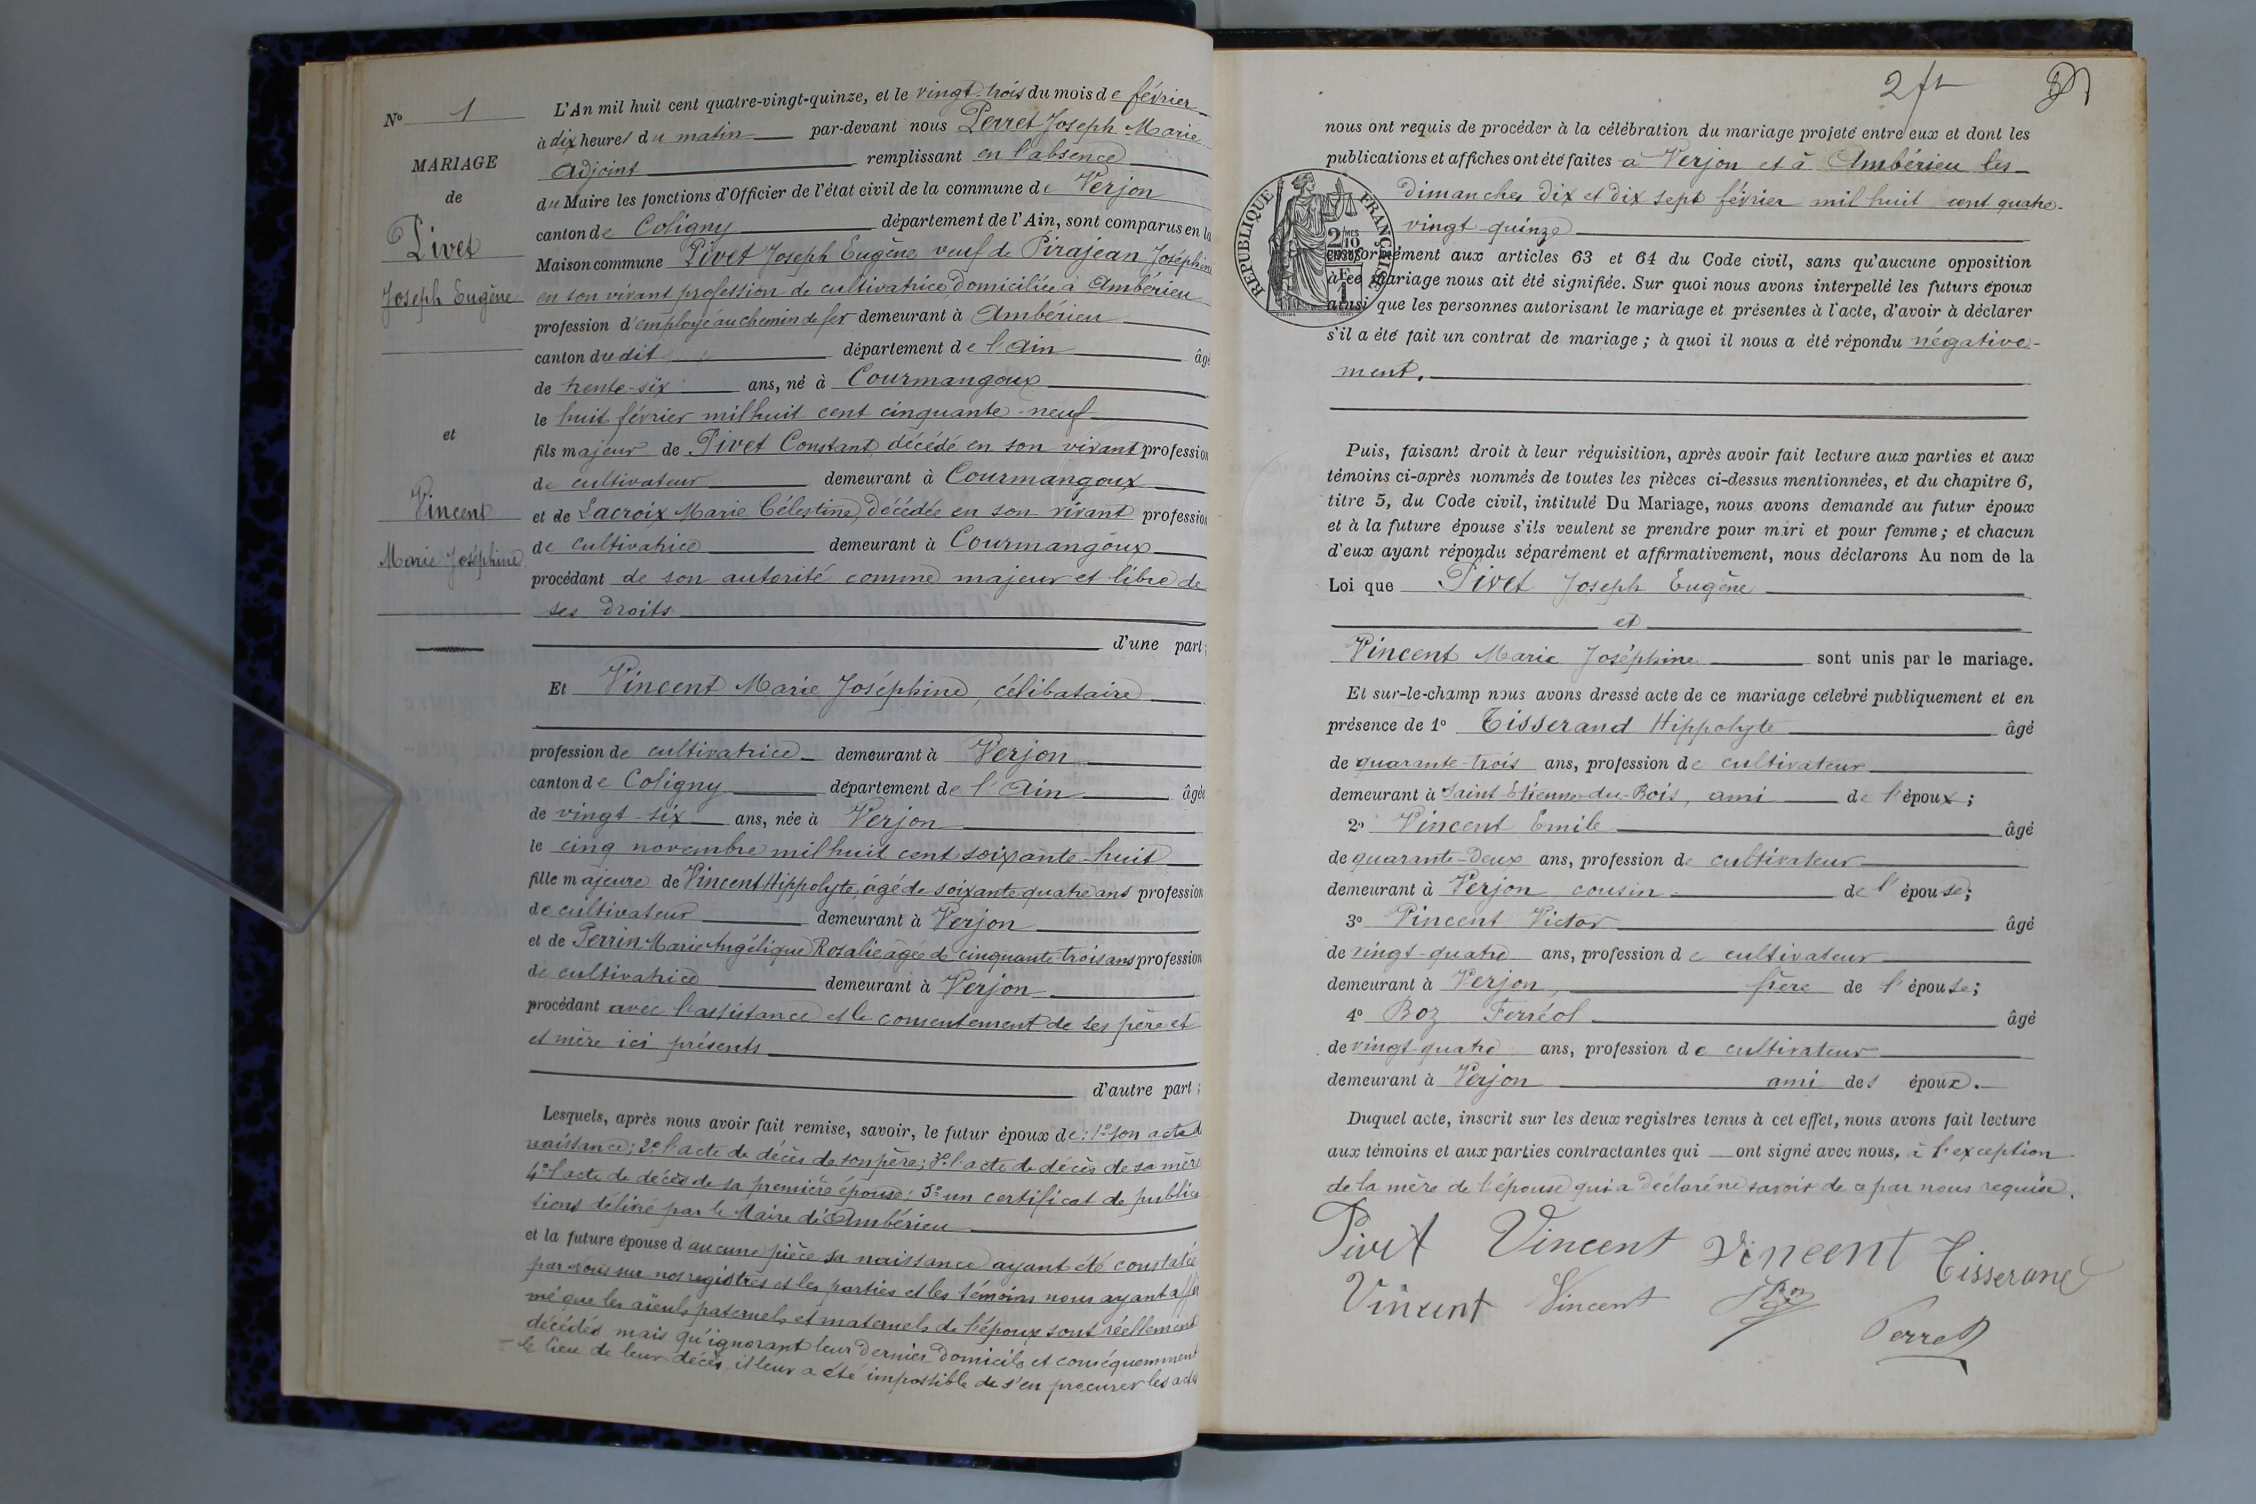 N° 1
MARIAGE
de
Pivet
Joseph Eugène
et
Vincent
Marie Joséphine
L'An mil huit cent quatre-vingt-quinze, et le vingt-trois du mois de février
à dix heures du matin par-devant nous Perret Joseph Marie
Adjoint remplissant en l'absence
du Maire les fonctions d'Officier de l'état civil de la commune de Verjon
canton de Coligny département de l'Ain, sont comparus en la
Maison commune Pivet Joseph Eugène, veuf de Pirajean Joséphine
en son vivant profession de cultivatrice domiciliée à Ambérieu
profession d'employé au chemin de fer demeurant à Ambérieu
canton du dit département de l'Ain âgé
de trente-six ans, né à Courmangoux
le huit février mil huit cent cinquante-neuf
fils majeur de Pivet Constant, décédé en son vivant profession
de cultivateur demeurant à Courmangoux
et de Lacroix Marie Célestine, décédée en son vivant profession
de cultivatrice demeurant à Courmangoux
procédant de son autorité comme majeur et libre de
ses droits
d'une part;
Et Vincent Marie Joséphine, célibataire
profession de cultivatrice demeurant à Verjon
canton de Coligny département de l'Ain âgée
de vingt-six ans, née à Verjon
le cinq novembre mil huit cent soixante-huit
fille majeure de Vincent Hippolyte, âgé de soixante quatre ans profession
de cultivateur demeurant à Verjon
et de Perrin Marie Angélique Rosalie âgée de cinquante-trois ans profession
de cultivatrice demeurant à Verjon
procédant avec l'assistance et le consentement de ses père et
et mère ici présents
d'autre part;
Lesquels, après nous avoir fait remise, savoir, le futur époux de: 1° son acte de
naissance; 2° l'acte de décès de son père; 3° l'acte de décès de sa mère
4° l'acte de décès de sa première épouse; 5° un certificat de publica
tions délivré par le Maire d'Ambérieu
et la future épouse d'aucune pièce sa naissance ayant été constatée
par nous sur nos registres et les parties et les témoins nous ayant affir
mé que les aïeuls paternels et maternels de l'époux sont réellement
décédés mais qu'ignorant leur dernier domicile et conséquemment
le lieu de leur décès, il leur a été impossible de s'en procurer les actes
2
nous ont requis de procéder à la célébration du mariage projeté entre eux et dont les
publications et affiches ont été faites à Verjon et à Ambérieu les
dimanches dix et dix sept février mil huit cent quatre-
vingt-quinze
RÉPUBLIQUE FRANÇAISE
2/10
conformément aux articles 63 et 64 du Code civil, sans qu'aucune opposition
à ce mariage nous ait été signifiée. Sur quoi nous avons interpellé les futurs époux
ainsi que les personnes autorisant le mariage et présentes à l'acte, d'avoir à déclarer
s'il a été fait un contrat de mariage; à quoi il nous a été répondu négative-
ment.
Puis, faisant droit à leur réquisition, après avoir fait lecture aux parties et aux
témoins ci-après nommés de toutes les pièces ci-dessus mentionnées, et du chapitre 6,
titre 5, du Code civil, intitulé Du Mariage, nous avons demandé au futur époux
et à la future épouse s'ils veulent se prendre pour mari et pour femme; et chacun
d'eux ayant répondu séparément et affirmativement, nous déclarons Au nom de la
Loi que Pivet Joseph Eugène
et
Vincent Marie Joséphine sont unis par le mariage.
Et sur-le-champ nous avons dressé acte de ce mariage célébré publiquement et en
présence de 1° Tisserand Hippolyte âgé
de quarante-trois ans, profession de cultivateur
demeurant à Saint-Etienne-du-Bois, ami de l'époux;
2° Vincent Emile âgé
de quarante-deux ans, profession de cultivateur
demeurant à Verjon cousin de l'épouse;
3° Vincent Victor âgé
de vingt-quatre ans, profession de cultivateur
demeurant à Verjon, frère de l'épouse;
4° Boz Ferréol âgé
de vingt-quatre ans, profession de cultivateur
demeurant à Verjon ami des époux.
Duquel acte, inscrit sur les deux registres tenus à cet effet, nous avons fait lecture
aux témoins et aux parties contractantes qui ont signé avec nous, à l'exception
de la mère de l'épouse qui a déclaré ne savoir de ce par nous requise.
Pivet Vincent Vincent Tisserand
Vincent Vincent Boz
Perret